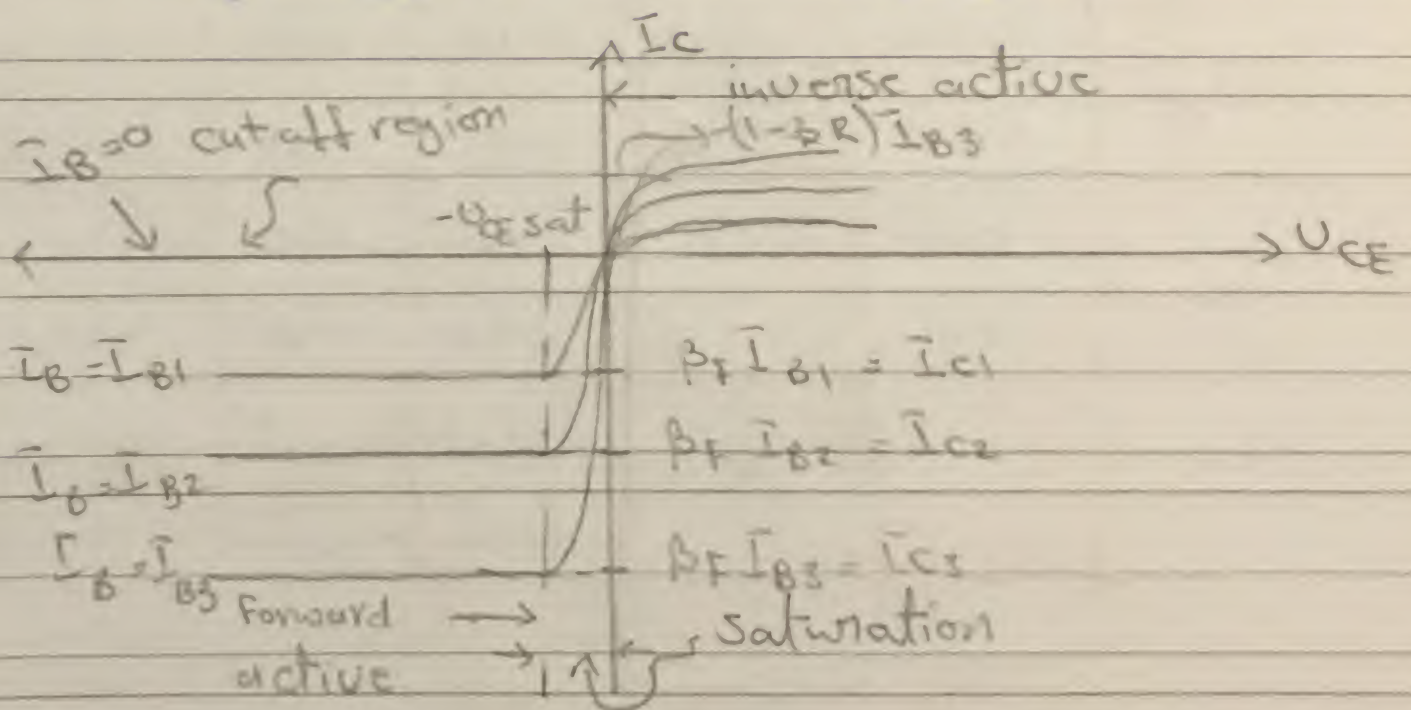 I̅c
inverse active
I̅B=0 cutoff region
-(1-βR) I̅B3
-υCE sat
υCE
I̅B = I̅B1
βF I̅B1 = I̅C1
I̅B = I̅B2
βF I̅B2 = I̅C2
I̅B = I̅B3
βF I̅B3 = I̅C3
Forward
active
saturation